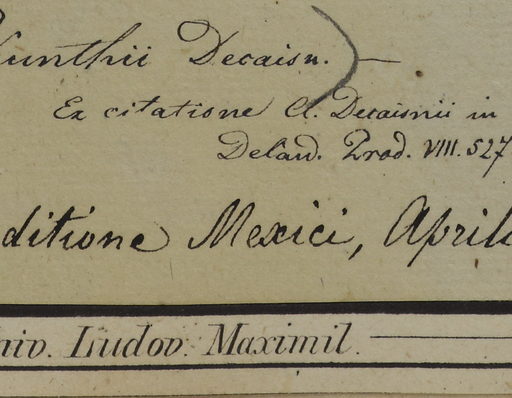 Kunthii Decaisn. ) —
Ex citatione Cl. Decaisnii in
Decand. Prod. VIII. 527
ditione Mexici, April
niv. Ludov. Maximil.